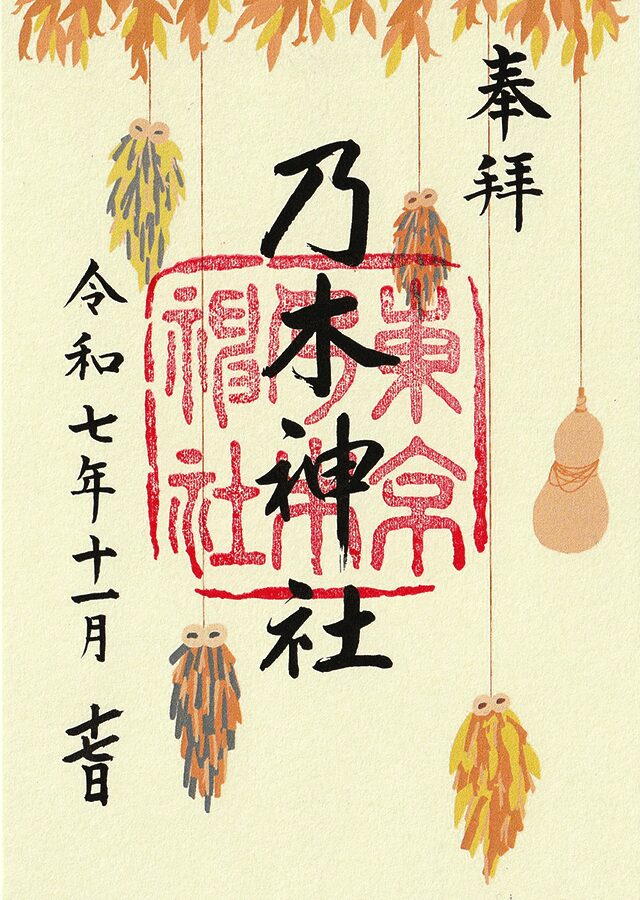 奉拝
乃木神社
東京
乃木
神社
令和七年十一月 十七日